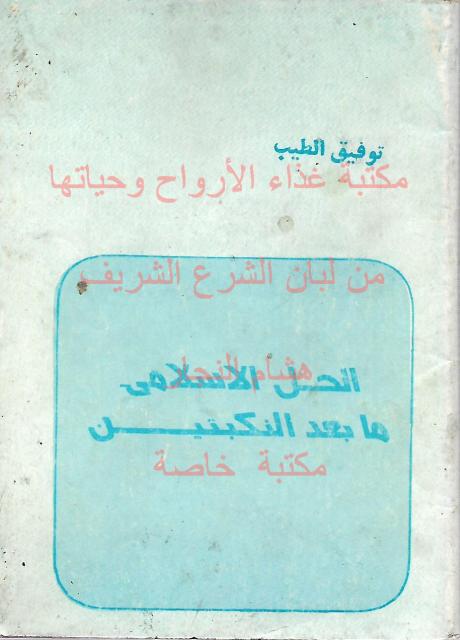 توفيق الطيب
مكتبة غذاء الأرواح وحياتها
من لبان الشرع الشريف
هشام النجار
الحل الاسلامى
ما بعد النكبتين
مكتبة خاصة